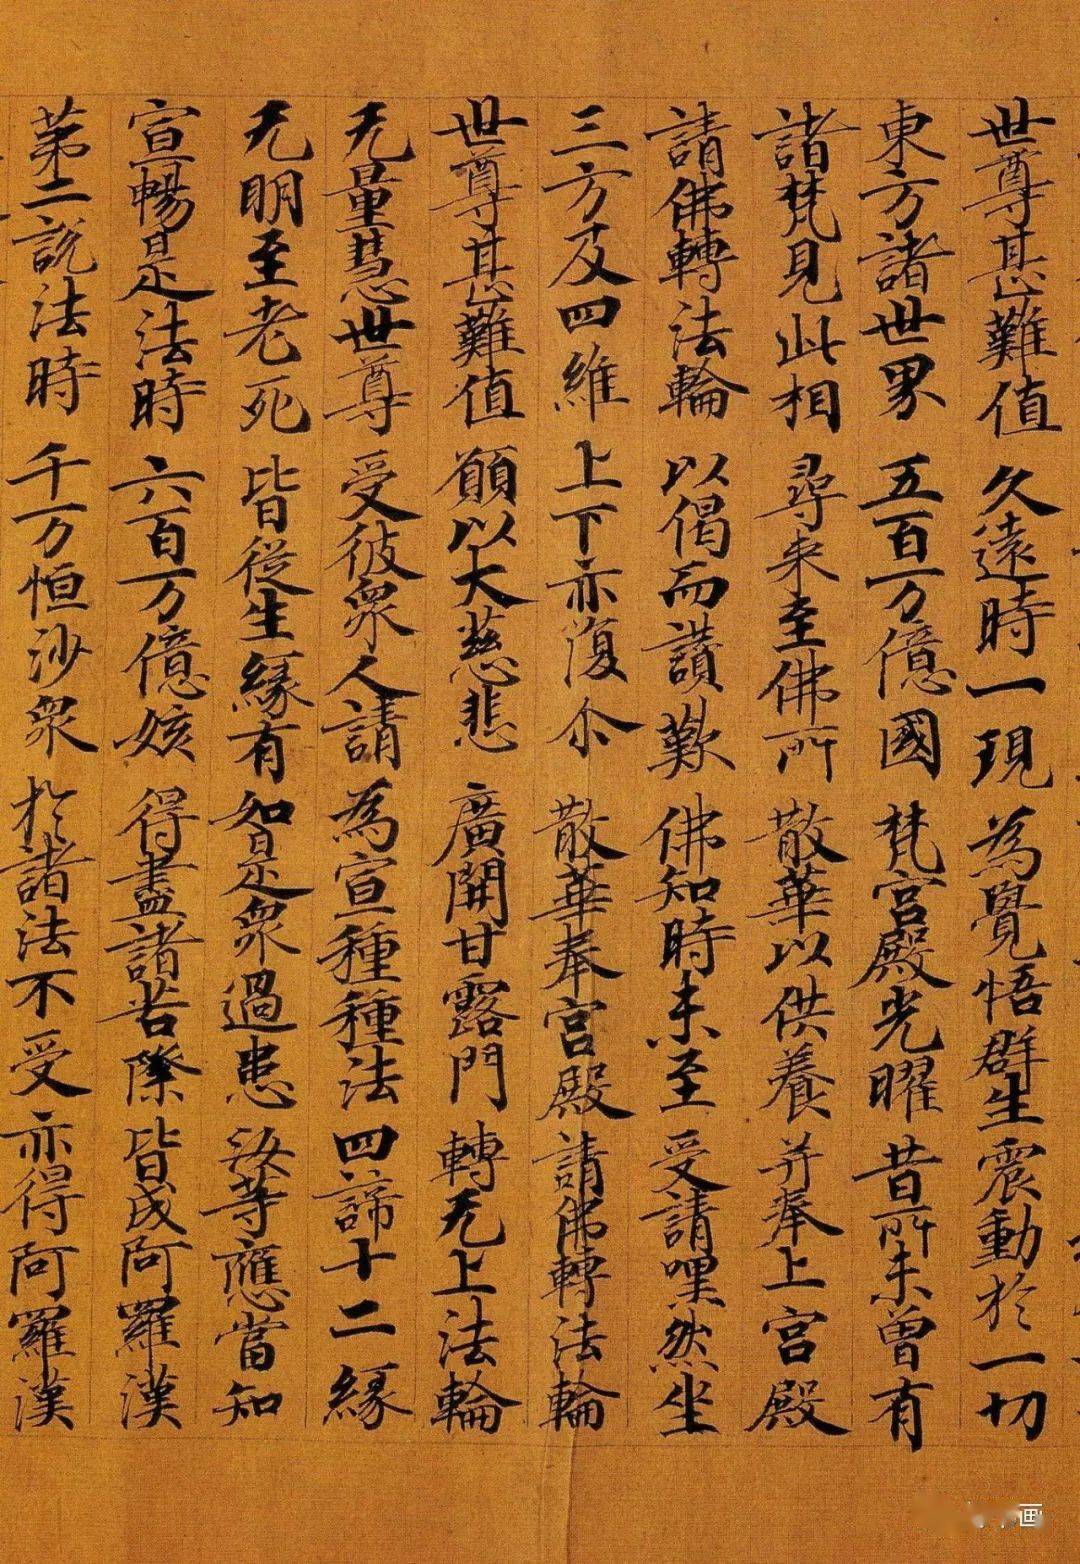 世尊甚難值 久遠時一現 為覺悟群生 震動於一切
東方諸世界 五百万億國 梵宮殿光曜 昔所未曾有
諸梵見此相 尋来至佛所 散華以供養 并奉上宮殿
請佛轉法輪 以偈而讃歎 佛知時未至 受請嘿然坐
三方及四維 上下亦復尒 散華奉宮殿 請佛轉法輪
世尊甚難值 願以大慈悲 廣開甘露門 轉无上法輪
无量慧世尊 受彼衆人請 為宣種種法 四諦十二緣
无明至老死 皆從生緣有 如是衆過患 汝等應當知
宣暢是法時 六百万億姟 得盡諸苦際 皆成阿羅漢
第二說法時 千万恒沙衆 於諸法不受 亦得阿羅漢
画